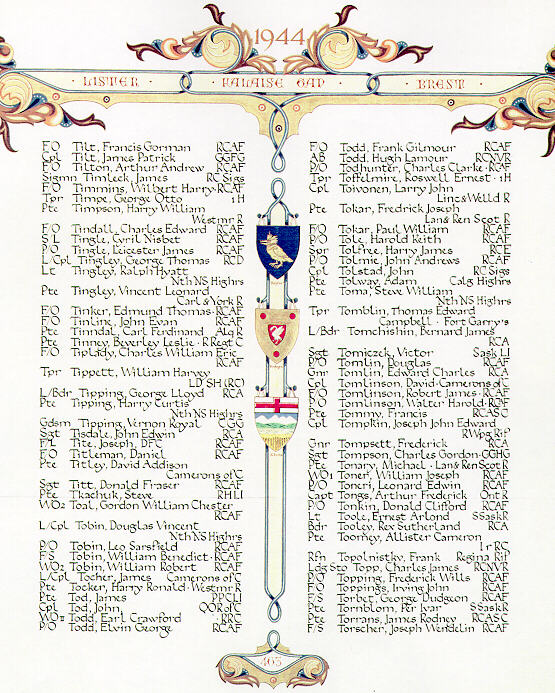 1944
LISTER · FALAISE GAP · BREST
F/O Tilt, Francis Gorman RCAF
Cpl Tilt, James Patrick GGFG
F/O Tilton, Arthur Andrew RCAF
Sigmn Timleck, James RC Sigs
F/O Timmins, Wilbert Harry · RCAF
Tpr Timpe, George Otto 1 H
Pte Timpson, Harry William
Westmr R
F/O Tindall, Charles Edward RCAF
S/L Tingle, Cyril Nisbet RCAF
P/O Tingle, Leicester James RCAF
L/Cpl Tingley, George Thomas RCD
Lt Tingley, Ralph Hyatt
Nth NS Highrs
Pte Tingley, Vincent Leonard
Carl & York R
F/O Tinker, Edmund Thomas · RCAF
F/O Tinline, John Evan RCAF
Pte Tinndal, Carl Ferdinand Alq R
Pte Tinney, Beverley Leslie · R Regt C
F/O Tiplady, Charles William Eric
RCAF
Tpr Tippett, William Harvey
LD SH (RC)
L/Bdr Tipping, George Lloyd RCA
Pte Tipping, Harry Curtis
Nth NS Highrs
Gdsm Tipping, Vernon Royal CGG
Sgt Tisdale, John Edwin RCA
F/L Tite, Joseph, DFC RCAF
F/O Titleman, Daniel RCAF
Pte Titley, David Addison
Camerons of C
Sgt Titt, Donald Fraser RCAF
Pte Tkachuk, Steve RHLI
WO2 Toal, Gordon William Chester
RCAF
L/Cpl Tobin, Douglas Vincent
Nth NS Highrs
P/O Tobin, Leo Sarsfield RCAF
F/S Tobin, William Benedict · RCAF
WO2 Tobin, William Robert RCAF
L/Cpl Tocher, James Camerons of C
Pte Tocker, Harry Ronald · Westmr R
Pte Tod, James PPCLI
Cpl Tod, John QOR of C
WOII Todd, Earl Crawford RRC
P/O Todd, Elvin George RCAF
F/O Todd, Frank Gilmour RCAF
AB Todd, Hugh Lamour RCNVR
P/O Todhunter, Charles Clarke · RCAF
Tpr Toffelmire, Roswell Ernest · 1H
Cpl Toivonen, Larry John
Linc & Welld R
Pte Tokar, Fredrick Joseph
Lan & Ren Scot R
F/O Tokar, Paul William RCAF
P/O Tole, Harold Keith RCAF
Spr Tolfree, Harry James RCE
P/O Tolmie, John Andrews RCAF
Cpl Tolstad, John RC Sigs
Pte Tolway, Adam Calg Highrs
Pte Toma, Steve William
Nth NS Highrs
Tpr Tomblin, Thomas Edward
Campbell · Fort Garry's
L/Bdr Tomchishin, Bernard James
RCA
Sgt Tomiczek, Victor Sask LI
P/O Tomlin, Douglas RCAF
Gnr Tomlin, Edward Charles RCA
Cpl Tomlinson, David · Camerons of C
F/O Tomlinson, Robert James · RCAF
P/O Tomlinson, Walter Harold · RCAF
Pte Tommy, Francis RCASC
Cpl Tompkin, Joseph John Edward
R Wpg Rif
Gnr Tompsett, Frederick RCA
Sgt Tompson, Charles Gordon · CGHG
Pte Tonary, Michael · Lan & Ren Scot R
WO1 Toner, William Joseph RCAF
P/O Toneri, Leonard Edwin RCAF
Capt Tongs, Arthur Frederick Ont R
P/O Tonkin, Donald Clifford RCAF
Lt Toole, Ernest Arlond S Sask R
Bdr Tooley, Rex Sutherland RCA
Pte Toomey, Allister Cameron
1 r RC
Rfn Topolnisky, Frank Regina Rif
Ldg Sto Topp, Charles James RCNVR
P/O Topping, Frederick Wills RCAF
F/O Toppings, Irving John RCAF
F/S Torbet, George Dudgeon RCAF
Pte Tornblom, Per Ivar S Sask R
Pte Torrans, James Rodney RCASC
F/S Torscher, Joseph Wendelin RCAF
463